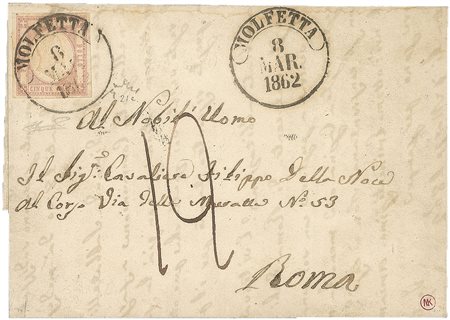 MOLFETTA
8
MAR.
CINQUE
MOLFETTA
8
MAR.
1862
Al Nobil' Uomo
19
Il Sig.r Cavaliere Filippo Della Noce
al Corso Via delle Muratte N.o 53
Roma
NK